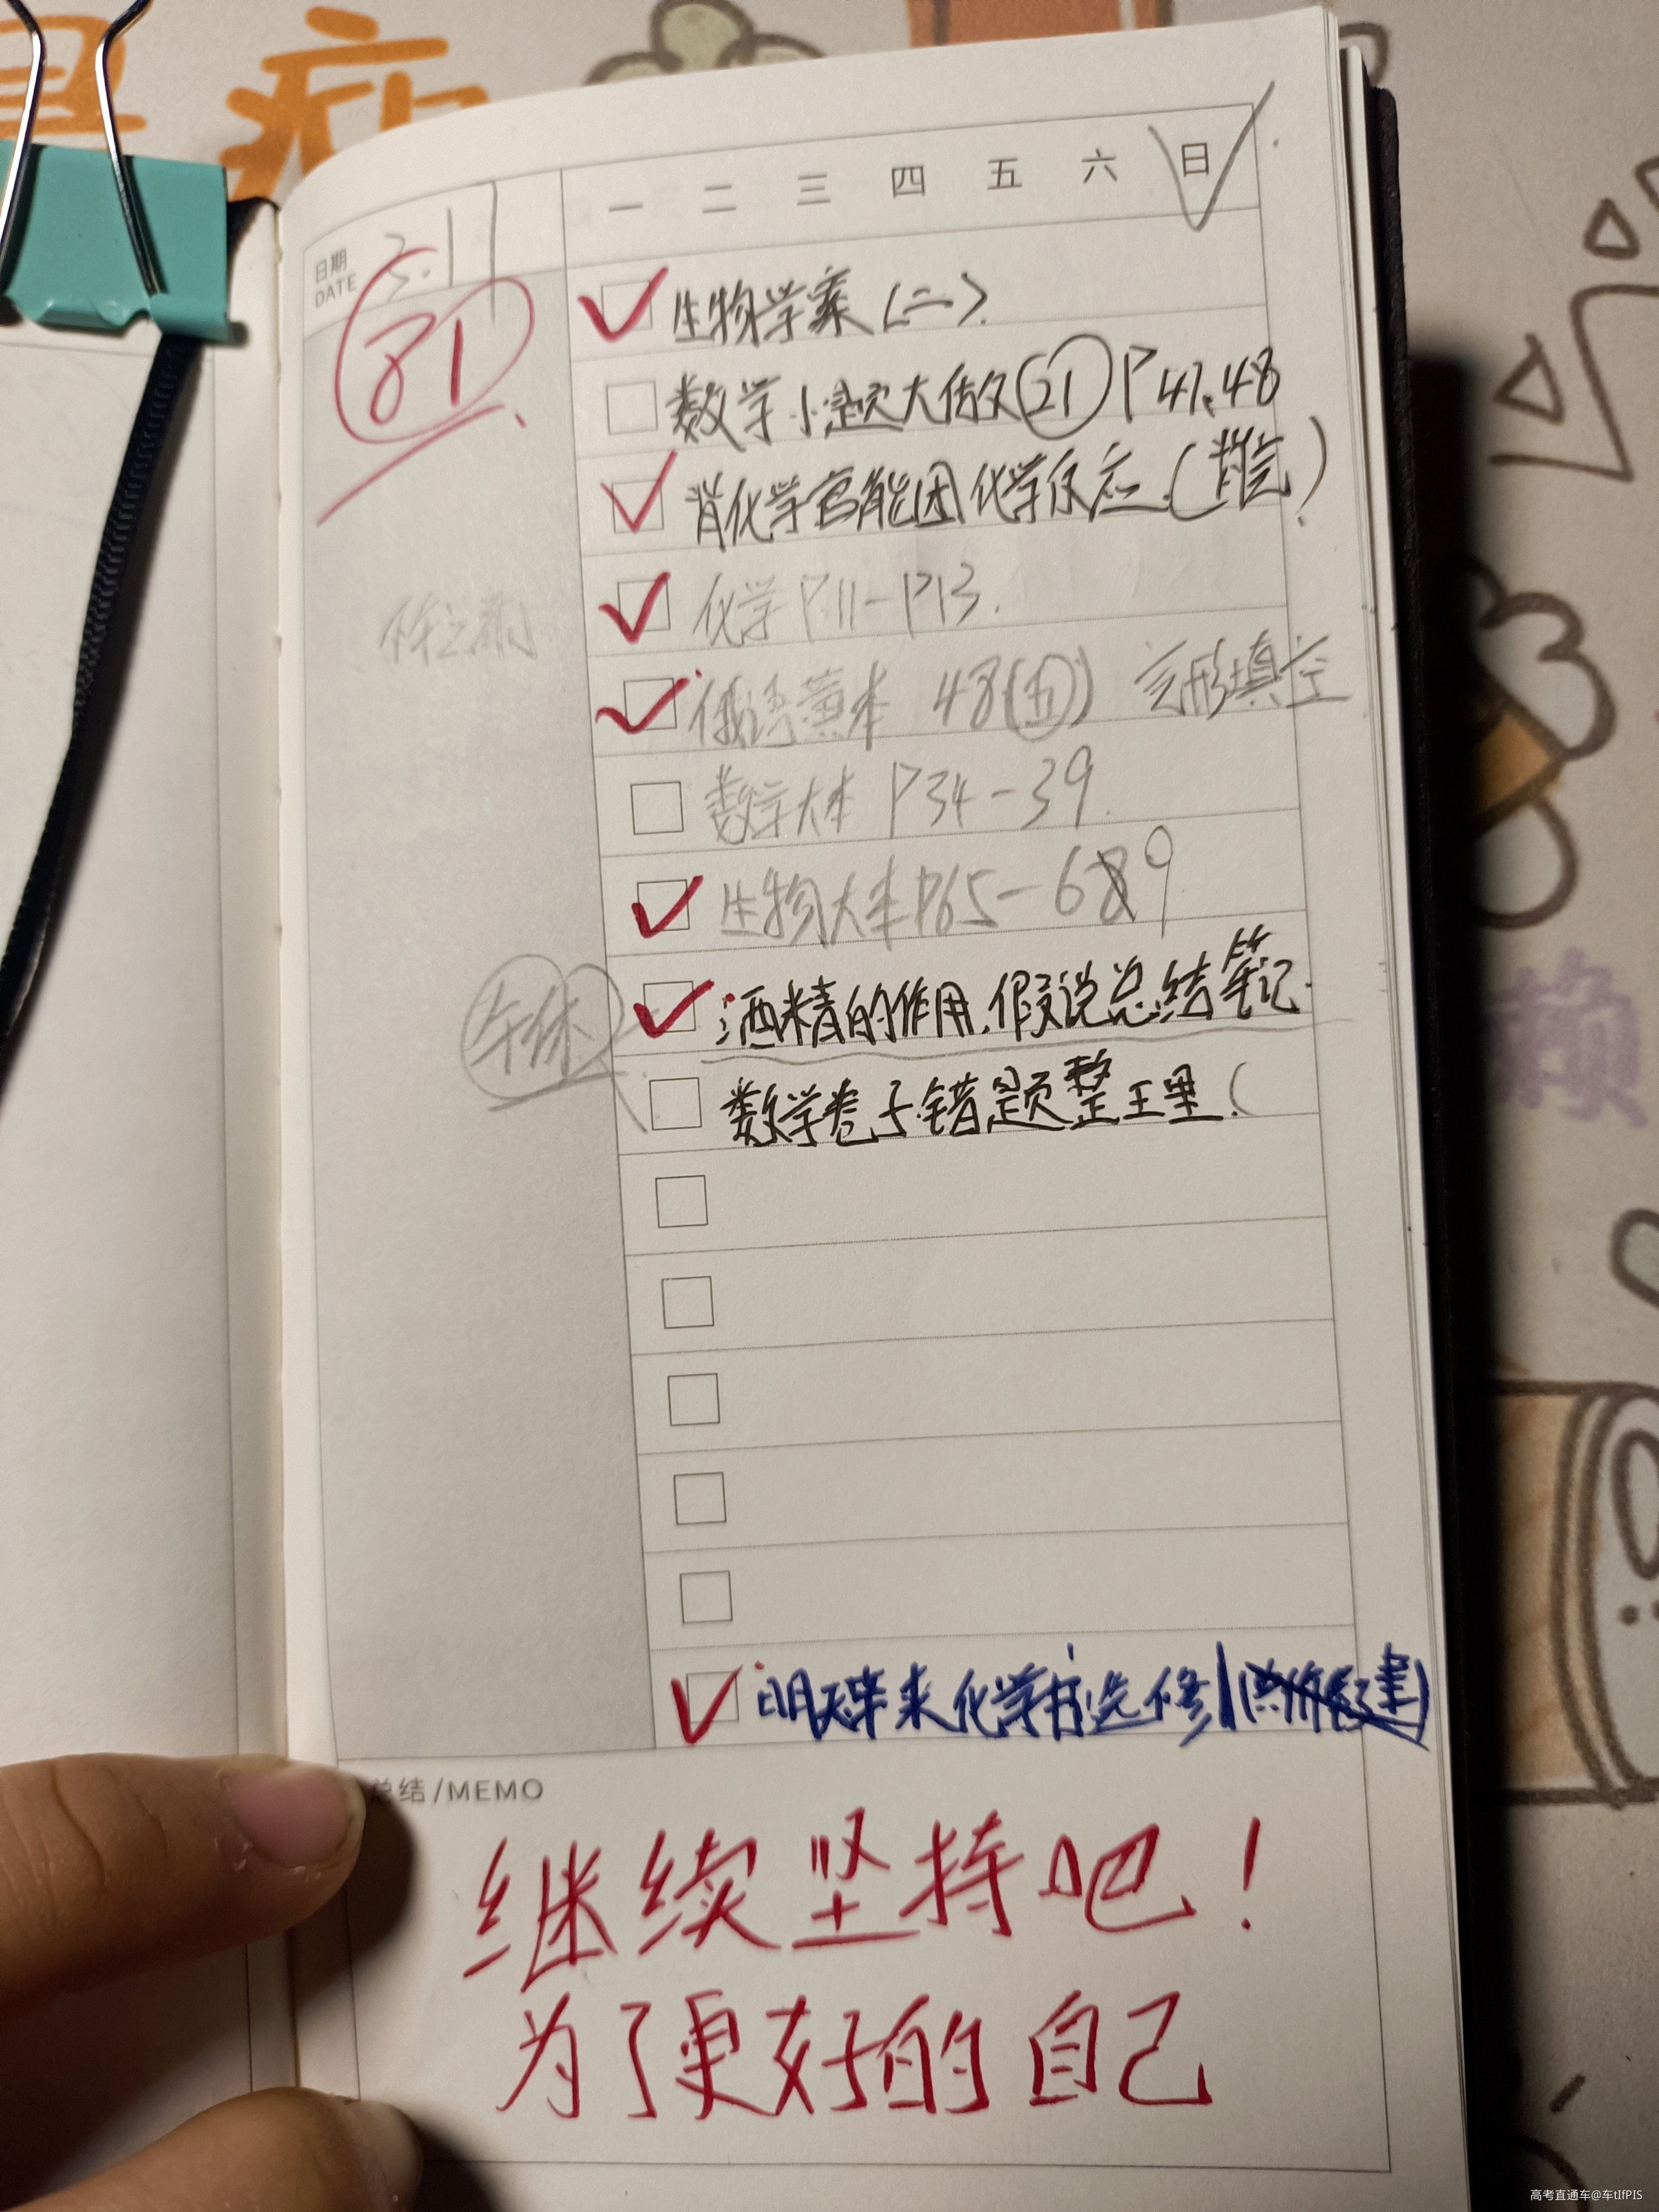 一 二 三 四 五 六 日
日期
DATE
3.17
81
生物学案(二).
数学小题大做(21)P47、48
背化学官能团化学反应.(背完)
化学P11-P13.
俄语黄本 48(五) 完形填空
数学大本 P34-39.
生物大本P65-69
午休
酒精的作用.假说总结笔记.
数学卷子错题整理.(
明天拿来化学书选修1
总结/MEMO
继续坚持吧!
为了更好的自己
高考直通车@车tIfPIS